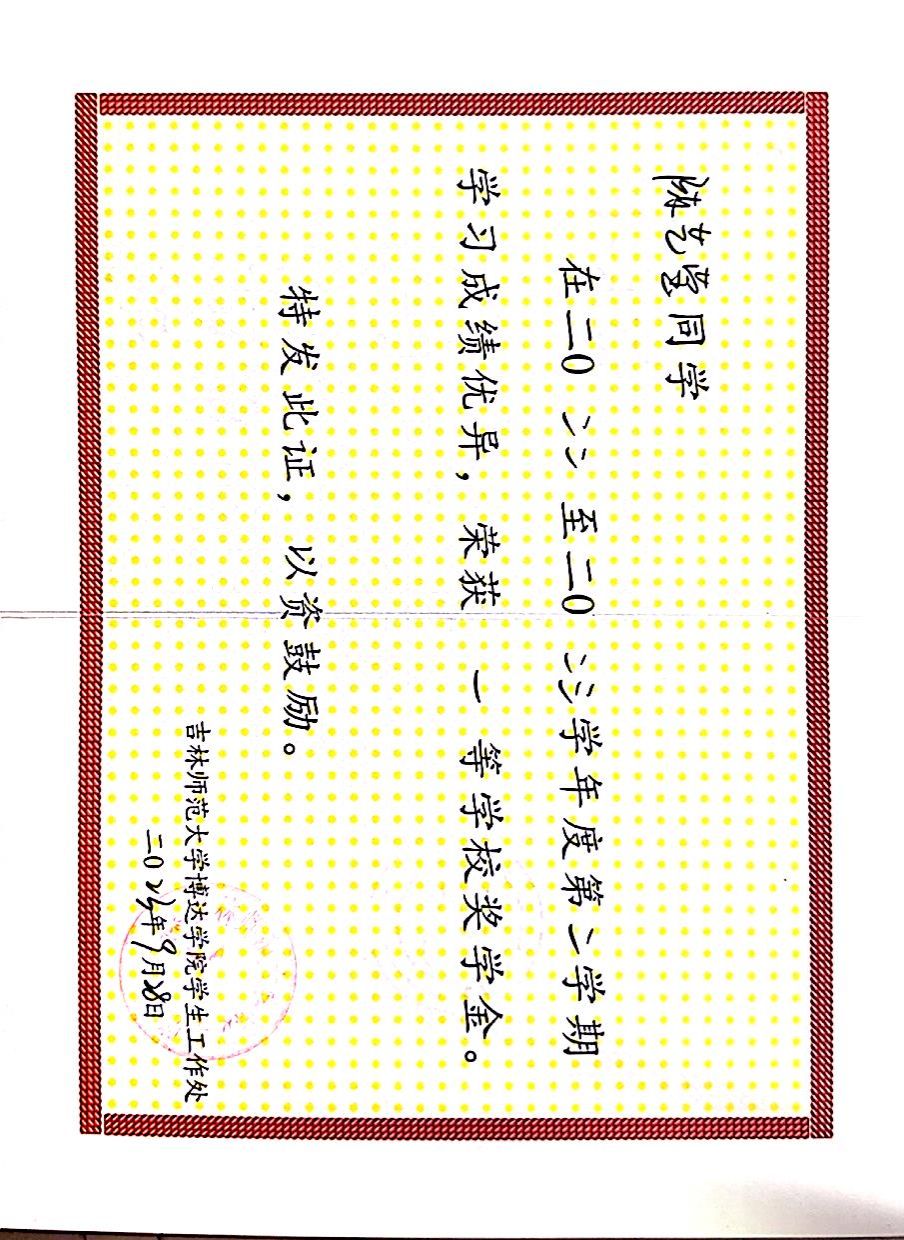 陈艺莹同学
在二〇二二至二〇二三学年度第二学期
学习成绩优异，荣获一等学校奖学金。
特发此证，以资鼓励。
吉林师范大学博达学院学生工作处
二〇23年9月28日